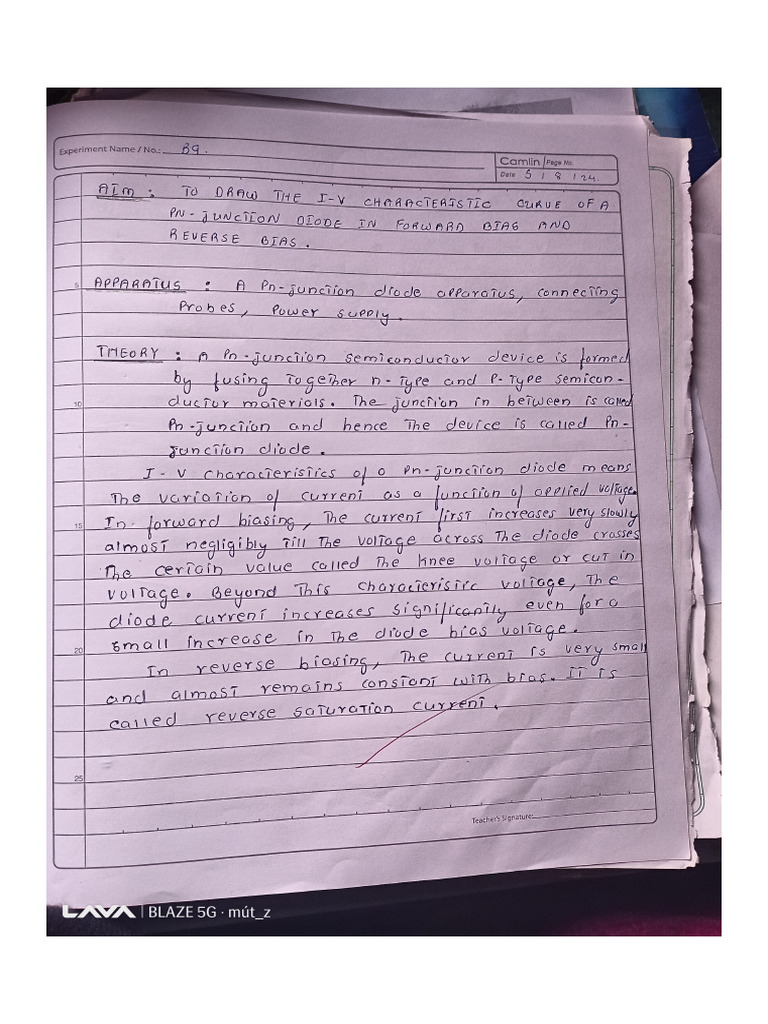 Experiment Name / No.: B9.
Camlin Page No.
Date 5 / 8 / 24.
AIM : TO DRAW THE I-V CHARACTERISTIC CURVE OF A
PN-JUNCTION DIODE IN FORWARD BIAS AND
REVERSE BIAS.
5
APPARATUS : A Pn-junction diode apparatus, connecting
Probes, Power supply.
THEORY : A Pn-junction semiconductor device is formed
by fusing together n-type and P-type semicon-
10
ductor materials. The junction in between is called
Pn-junction and hence the device is called Pn-
junction diode.
I-V characteristics of a Pn-junction diode means
the variation of current as a function of applied voltage.
15
In forward biasing, the current first increases very slowly
almost negligibly till the voltage across the diode crosses
the certain value called the knee voltage or cut in
voltage. Beyond this characteristic voltage, the
diode current increases significantly even for a
20
small increase in the diode bias voltage.
In reverse biasing, the current is very small
and almost remains constant with bias. It is
called reverse saturation current.
25
Teacher's Signature:
LAVA | BLAZE 5G · mút_z